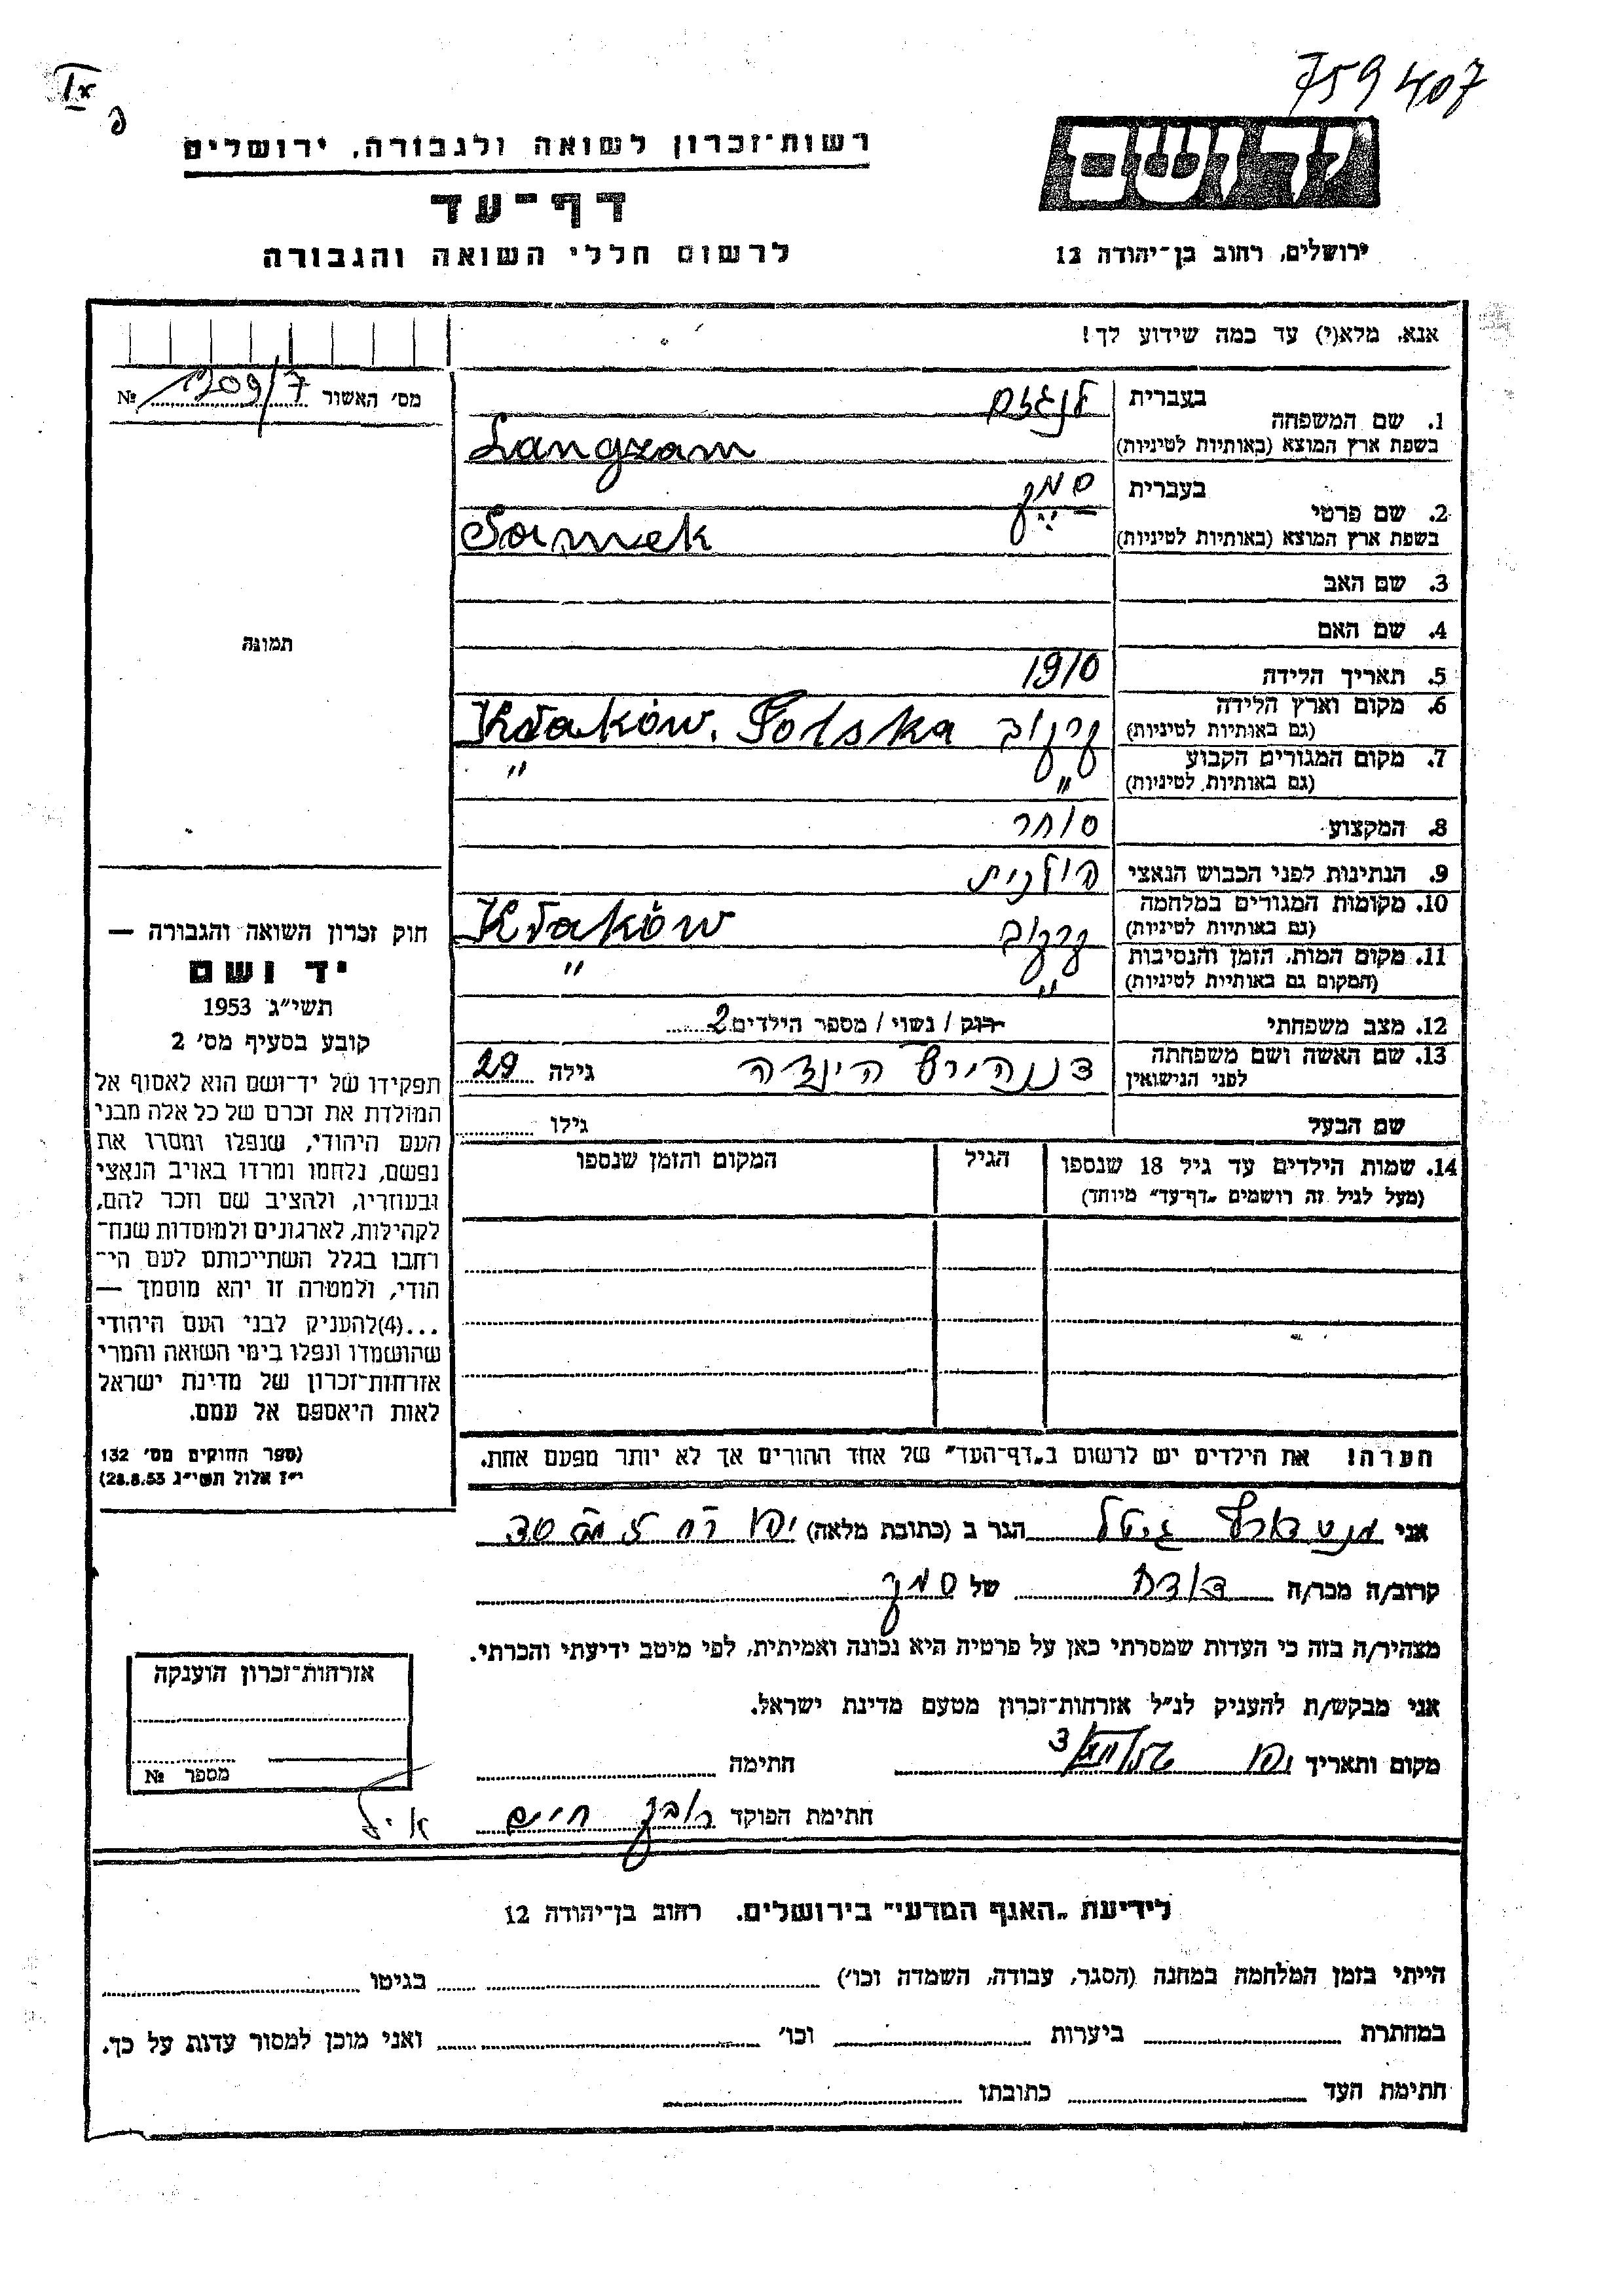 759407
רשות־זכרון לשואה ולגבורה, ירושלים
דף־עד
לרשום חללי השואה והגבורה
יד ושם
ירושלים, רחוב בן־יהודה 12
אנא, מלא(י) עד כמה שידוע לך!
מס' האשור № 1209/7
1. שם המשפחה בעברית לנגזם
בשפת ארץ המוצא (באותיות לטיניות) Langzam
2. שם פרטי בעברית סמק
בשפת ארץ המוצא (באותיות לטיניות) Samek
3. שם האב
4. שם האם
תמונה
5. תאריך הלידה 1910
6. מקום וארץ הלידה (גם באותיות לטיניות) קרקוב Kraków. Polska
7. מקום המגורים הקבוע (גם באותיות לטיניות) " "
8. המקצוע סוחר
9. הנתינות לפני הכבוש הנאצי פולנית
10. מקומות המגורים במלחמה (גם באותיות לטיניות) קרקוב Kraków
11. מקום המות, הזמן והנסיבות (המקום גם באותיות לטיניות) " "
12. מצב משפחתי רוק / נשוי / מספר הילדים 2
13. שם האשה ושם משפחתה לפני הנישואין הינדה גילה 29
שם הבעל גילו
14. שמות הילדים עד גיל 18 שנספו הגיל המקום והזמן שנספו
(מעל לגיל זה רושמים „דף־עד" מיוחד)
חוק זכרון השואה והגבורה —
יד ושם
תשי"ג 1953
קובע בסעיף מס' 2
תפקידו של יד־ושם הוא לאסוף אל
המולדת את זכרם של כל אלה מבני
העם היהודי, שנפלו ומסרו את
נפשם, נלחמו ומרדו באויב הנאצי
ובעוזריו, ולהציב שם וזכר להם,
לקהילות, לארגונים ולמוסדות שנח־
רחבו בגלל השתייכותם לעם הי־
הודי, ולמטרה זו יהא מוסמך —
...(4)להעניק לבני העם היהודי
שהושמדו ונפלו בימי השואה והמרי
אזרחות־זכרון של מדינת ישראל
לאות היאספם אל עמם.
(ספר החוקים מס' 132
י"ז אלול תשי"ג 28.8.53)
הערה! את הילדים יש לרשום ב„דף־העד" של אחד ההורים אך לא יותר מפעם אחת.
אני גיטל הגר ב (כתובת מלאה) יפו רח
קרוב/ה מכר/ה דודה של סמק
מצהיר/ה בזה כי העדות שמסרתי כאן על פרטיה היא נכונה ואמיתית, לפי מיטב ידיעתי והכרתי.
אני מבקש/ת להעניק לנ"ל אזרחות־זכרון מטעם מדינת ישראל.
מקום ותאריך יפו חתימה
חתימת הפוקד חיים
אזרחות־זכרון הוענקה
מספר №
לידיעת „האגף המדעי" בירושלים. רחוב בן־יהודה 12
הייתי בזמן המלחמה במחנה (הסגר, עבודה, השמדה וכו') בגיטו
במחתרת ביערות וכו' ואני מוכן למסור עדות על כך.
חתימת העד כתובתו